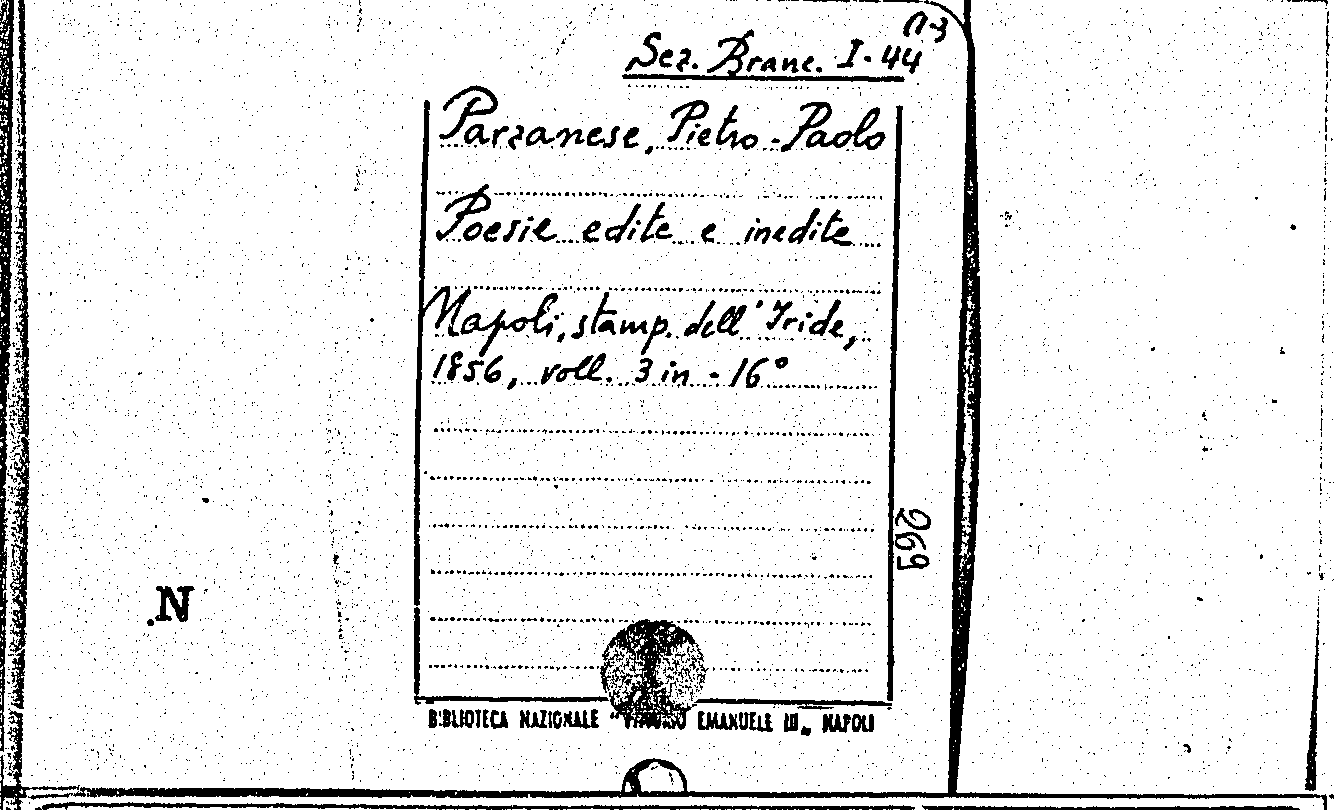 (1-3
Sez. Branc. I-44
Parzanese, Pietro-Paolo
Poesie edite e inedite
Napoli, stamp. dell'Iride,
1856, voll. 3 in-16°
269
N
BIBLIOTECA NAZIONALE "VITTORIO EMANUELE III„ NAPOLI